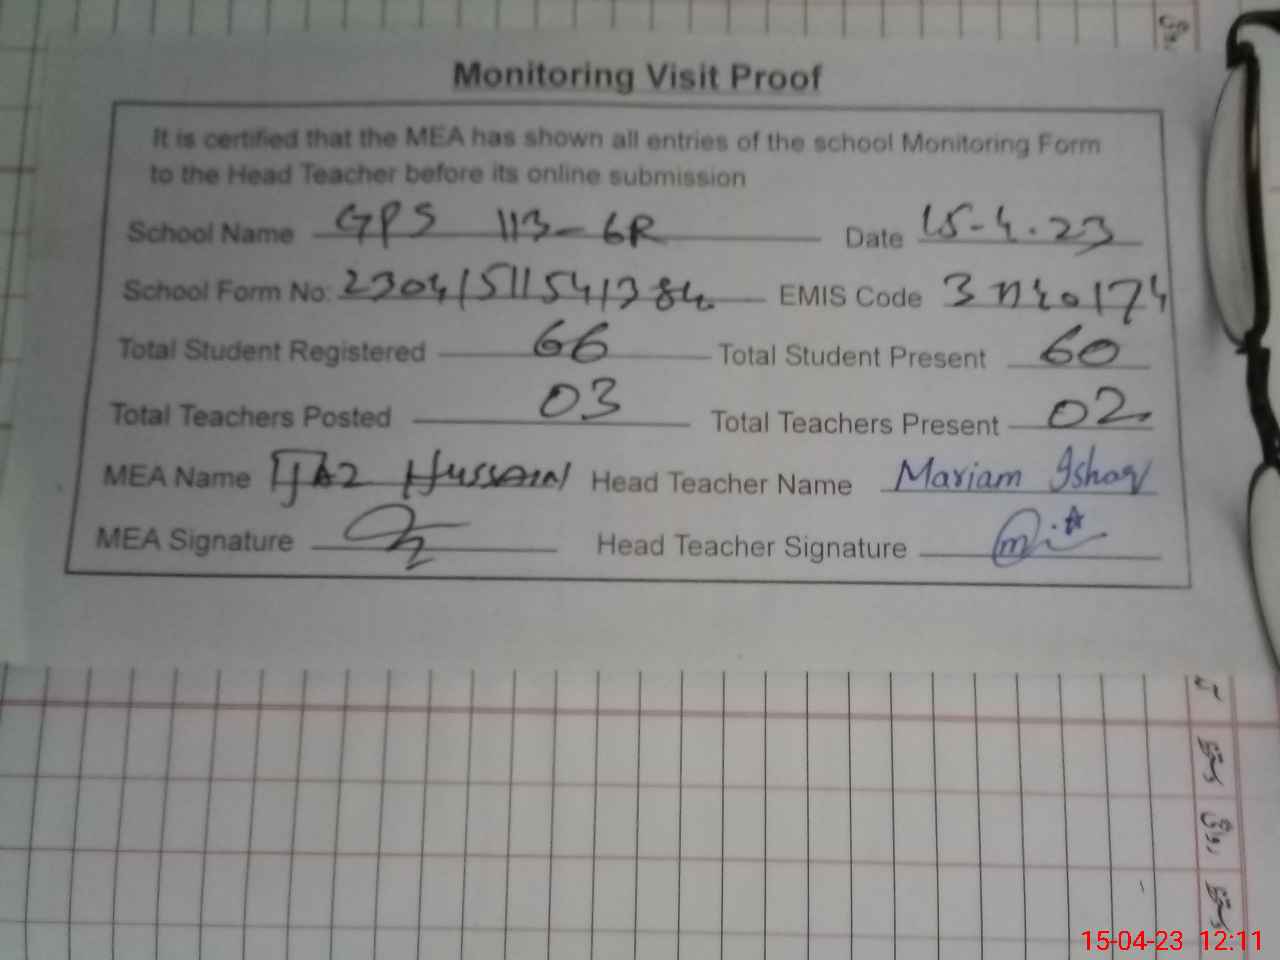 Monitoring Visit Proof
It is certified that the MEA has shown all entries of the school Monitoring Form
to the Head Teacher before its online submission
School Name GPS 113-6R Date 15-4-23
School Form No: EMIS Code
Total Student Registered 66 Total Student Present 60
Total Teachers Posted 03 Total Teachers Present 02
MEA Name IJAZ HUSSAIN Head Teacher Name Mariam Ishaq
MEA Signature Head Teacher Signature
15-04-23 12:11